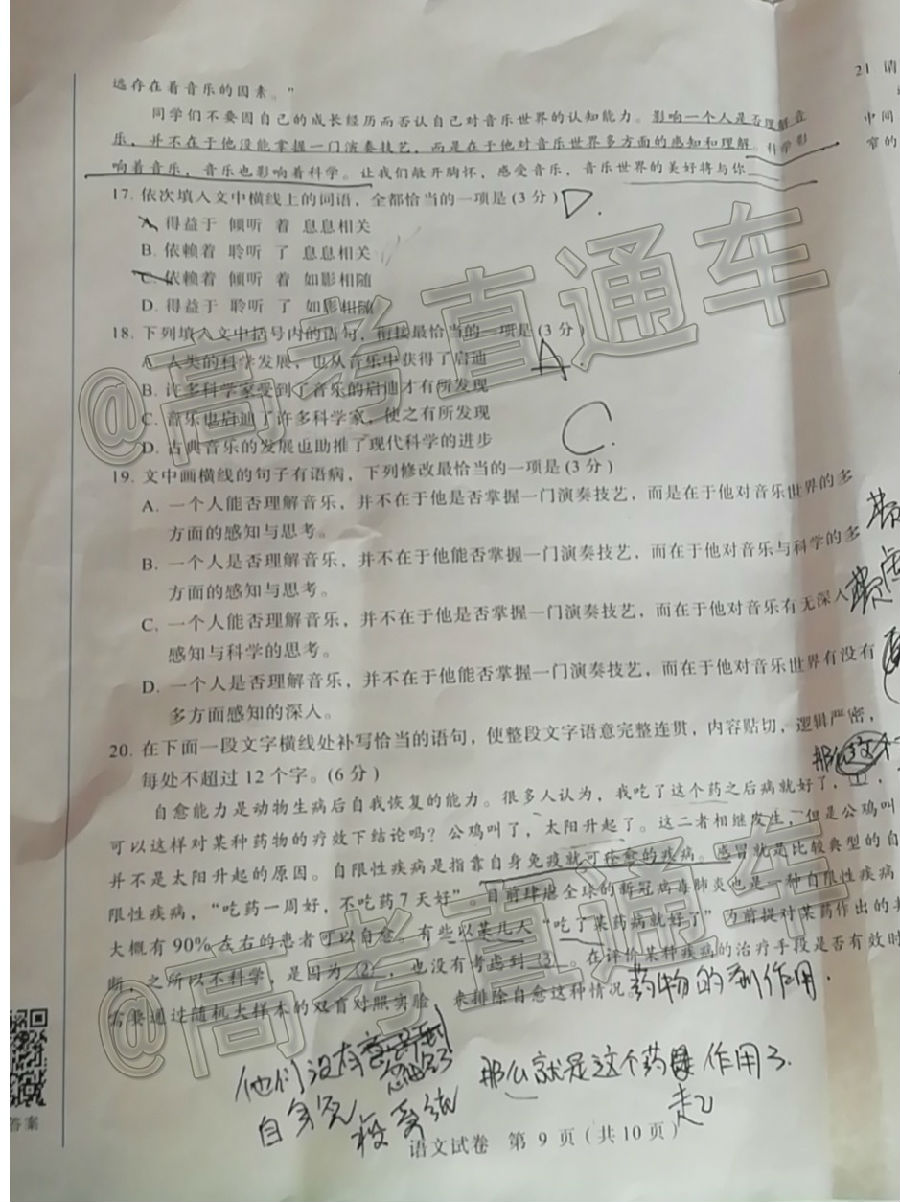 远存在着音乐的因素。"
同学们不要因自己的成长经历而否认自己对音乐世界的认知能力。影响一个人是否理解音
乐，并不在于他没能掌握一门演奏技艺，而是在于他对音乐世界多方面的感知和理解。科学影
响着音乐，音乐也影响着科学。让我们敞开胸怀，感受音乐，音乐世界的美好将与你
17. 依次填入文中横线上的词语，全都恰当的一项是(3分) D.
A. 得益于 倾听 着 息息相关
B. 依赖着 聆听 了 息息相关
C. 依赖着 倾听 着 如影相随
D. 得益于 聆听 了 如影相随
18. 下列填入文中括号内的语句，衔接最恰当的一项是(3分)
A. 人类的科学发展，也从音乐中获得了启迪
A
B. 许多科学家受到了音乐的启迪才有所发现
C. 音乐也启迪了许多科学家，使之有所发现
D. 古典音乐的发展也助推了现代科学的进步
C
19. 文中画横线的句子有语病，下列修改最恰当的一项是(3分)
A. 一个人能否理解音乐，并不在于他是否掌握一门演奏技艺，而是在于他对音乐世界的多
方面的感知与思考。
B. 一个人是否理解音乐，并不在于他能否掌握一门演奏技艺，而在于他对音乐与科学的多
方面的感知与思考。
C. 一个人能否理解音乐，并不在于他是否掌握一门演奏技艺，而在于他对音乐有无深入
感知与科学的思考。
D. 一个人是否理解音乐，并不在于他能否掌握一门演奏技艺，而在于他对音乐世界有没有
多方面感知的深入。
20. 在下面一段文字横线处补写恰当的语句，使整段文字语意完整连贯，内容贴切，逻辑严密，
每处不超过12个字。(6分)
自愈能力是动物生病后自我恢复的能力。很多人认为，我吃了这个药之后病就好了，
可以这样对某种药物的疗效下结论吗？公鸡叫了，太阳升起了。这二者相继发生，但是公鸡叫
并不是太阳升起的原因。自限性疾病是指靠自身免疫就可痊愈的疾病。感冒就是比较典型的自
限性疾病，"吃药一周好，不吃药7天好"。目前肆虐全球的新冠病毒肺炎也是一种自限性疾病
大概有90%左右的患者可以自愈。有些以某几天"吃了某药病就好了"为前提对某药作出的
断，之所以不科学，是因为 ② ，也没有考虑到 ③ 。在评价某种疾病的治疗手段是否有效时
需要通过随机大样本的双盲对照实验，来排除自愈这种情况。
药物的副作用.
他们没有
那么就是这个药 作用了.
起
自身免
语文试卷 第9页(共10页)
21 请
中间
窄的
答案
@高考直通车
@高考直通车